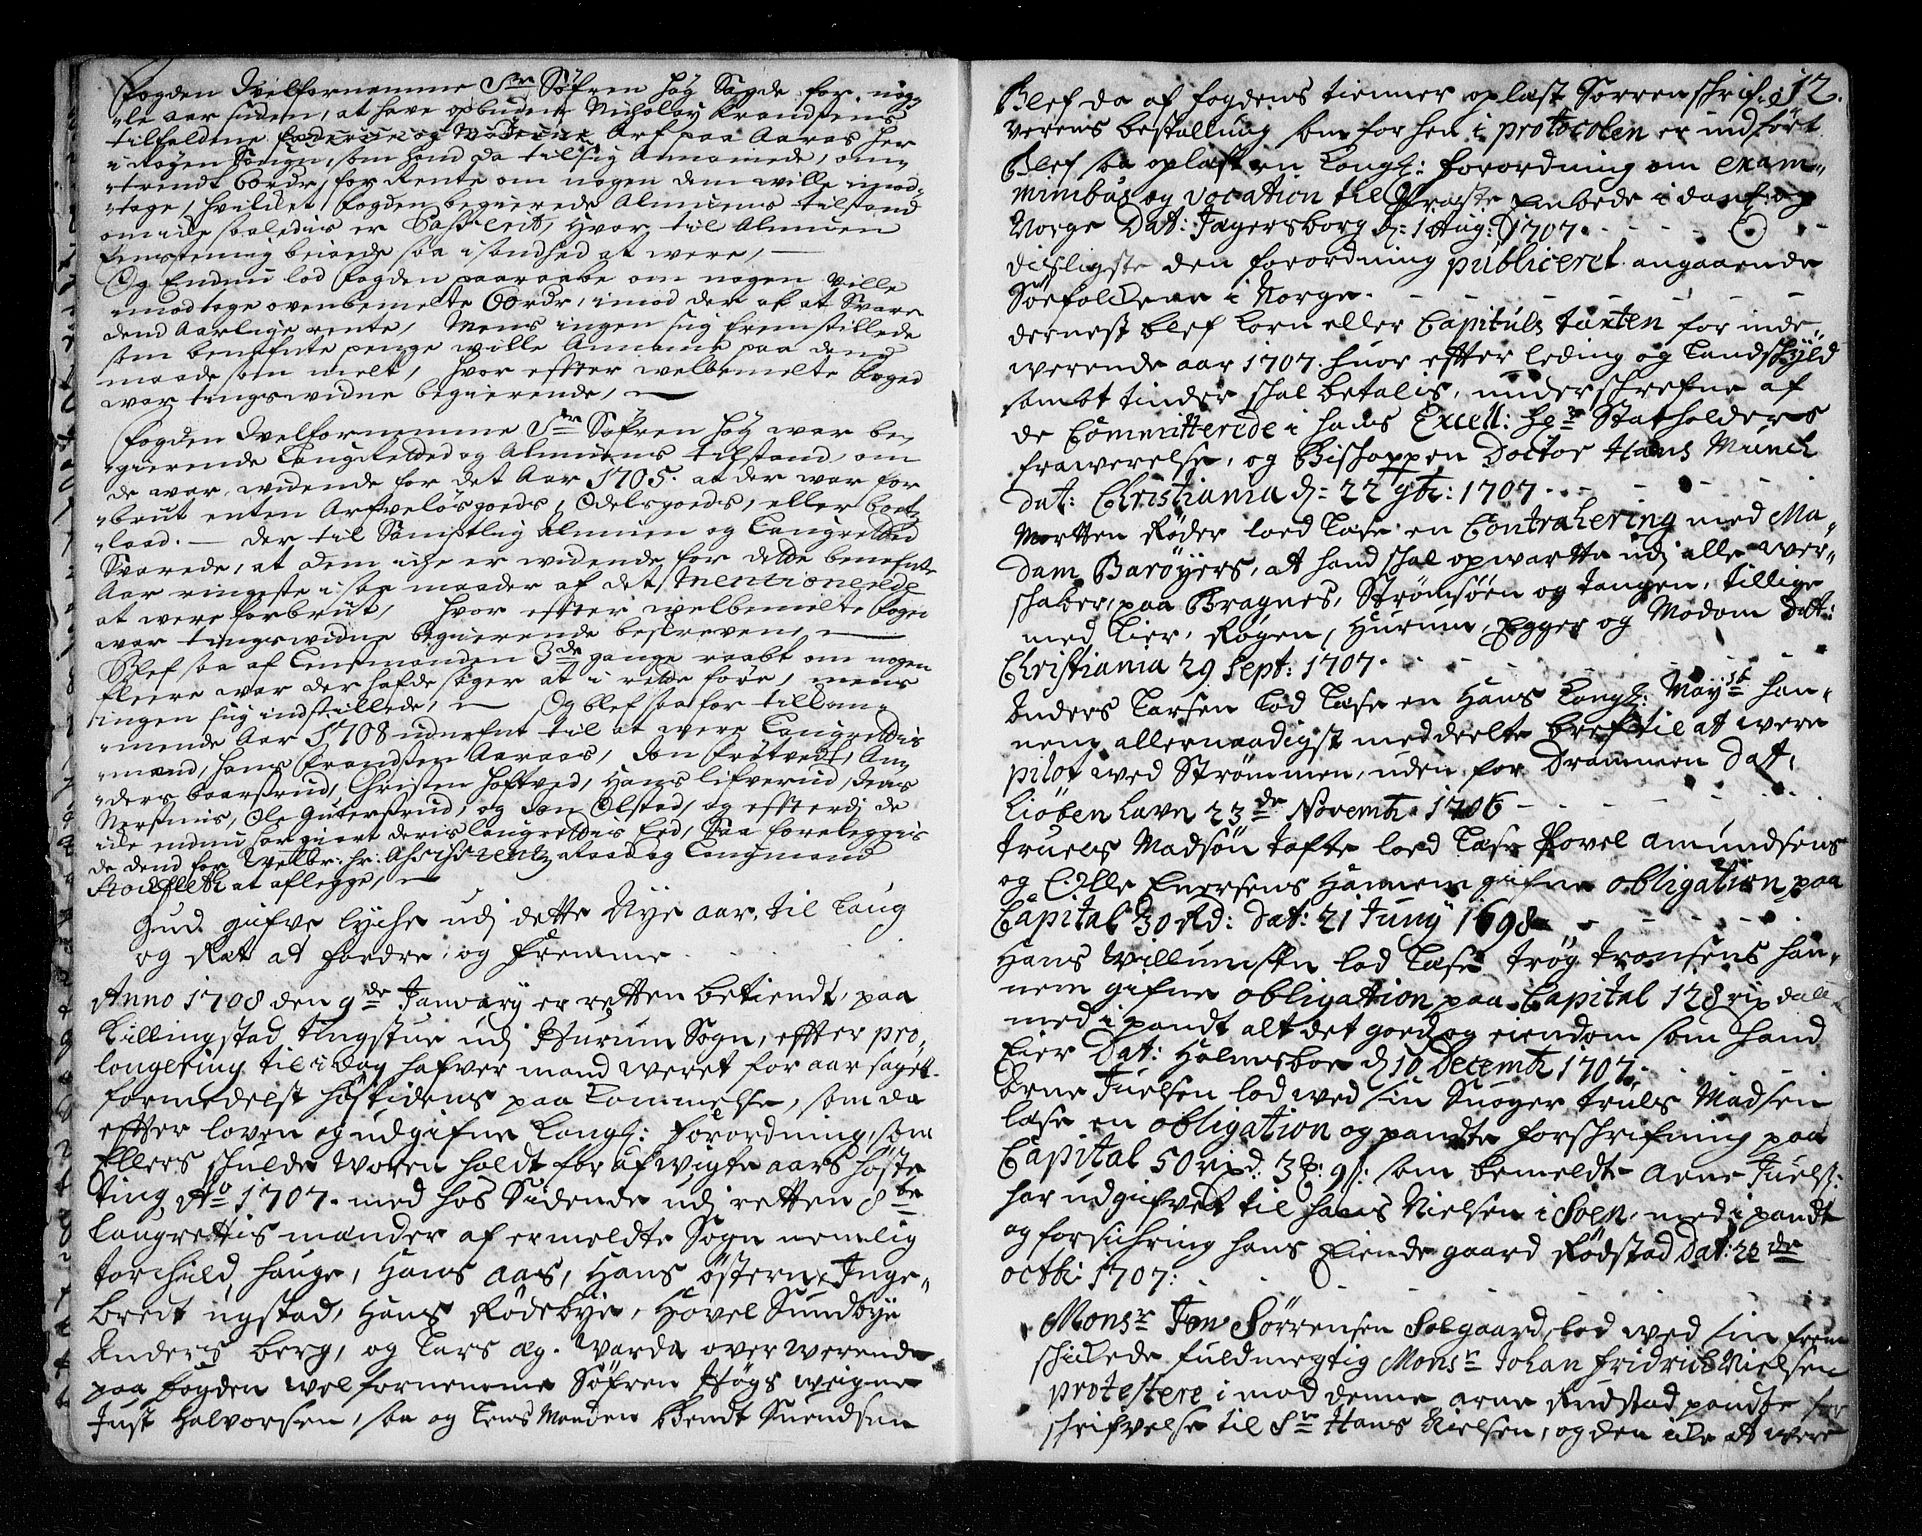 Fogden Velfornemme Sr Søfren Høg Sagde for nog,
-le aar siden, at have opbudene Nicholay Frandsens
tilfaldene Arf paa Aaras her
i Røgen Sougn, som hand da tilsig Annamede, om,
-trendt 600rdr, for Rente om nogen dem wille imod-
-tage, hvilchet fogden begierede Almuens tilstand
om icke saaledis er Passerit, Hvor, til Almuen
Eenstemig beiaede saa i sandhed at were,
Og Endnu lod fogden paaraabe om nogen wille
imodtage ovenbemelte 600rdr, imod der af at Svare
dend Aarlige rente, Mens ingen sig fremstillede
som benefnte penge wille Anname paa dend
maade som melt, Hvor effter welbemelte foged
war tingswidne begierende,
Fogden Velfornemme Sr Søfren Høg war be-
-gierende Laugretted og Almuens tilstand om
de war widende for det Aar 1705. at der war for
-brut enten Arfveløsgoeds, Odelsgoeds, eller boetz
-laad. — der til Samptlig Almuen og Laugretted
Svarede, at dem icke er widende for dette benefnte
Aar ringeste i saa maader af det mentionerede
at were forbrut, Hvor effter welbemelte foged
war tingswidne begierende beskreven,
Blef saa af Lensmanden 3de gange raabt om nogen
fleere war der hafde sager at i rette føre, mens
ingen sig indstillede, Og blef saa for tillkom-
-mende Aar 1708 udnefnt til at were Laugrettis
-mænd, Hans Frandsen Aaraas, Jon Frøtvedt, An,
-ders baarsrud, Christen Hoftved, Hans Lifverud, Jens
Nersnis, Ole Gutersrud, og Jon Olstad, og effterdi de
icke endnu har giort deris laugrettis Eed, Saa forelegges
de dend for Raad og Laugmand
Stockfleth at aflegge,
Gud gifve lyche udj dette Nye aar, til Laug
og Ræt at fordre og fremme
Anno 1708 den 9de January er retten betiendt paa
Killingstad tingstue udj Hurum Sogn, effter pro,
longering til i dag hafver mand weret for aarsaget
formedelst høstidens paa kommelse, som da
effter loven og udgifne kongl: forordning, som
Ellers skulde woren holdt for afwigte aars høste
ting Ao 1707. med hos Sidende udj retten 8te
laugrettis mænder af ermeldte Sogn nemlig
torchild hauge, Hans aas, Hans østern, Inge-
bredt ingstad, Hans Rødebye, Hovel Sundbye
Anders berg, og Lars æg. warda over werende
paa fogden wel fornemme Søfren Høgs weigne
Just Halvorsen, saa og Lens Manden Bendt Suendsen
Blef da af fogdens tienner oplæst Sorrenschrif- 12.
verens bestalling som for hen i protocolen er indført
Blef saa oplæst en Kongl: forordning om exam-
minibus og vocation til Præste Embede i dank og
Norge Dat: Jægersborg d: 1 Aug: 1707.
dissligeste den forordning publiceret angaaende
Søefolckene i Norge.
dernest blef Korn eller Capituls taxten for inde-
werende aar 1707. huor effter leding og Landschyld
sambt tinder skal betalis, underschrefne af
de Committerede i hans Excell: Hr Statholders
frawerelse, og Bischoppen Doctor Hans Munch
dat: Christiania d: 22 9br: 1707.
Mortten Røder loed Læse en Contrahering med Ma-
dam Barøyers, at hand skal opwartte udj alle wer-
schaber, paa Bragnes, Strømsøen og tangen, tillige
med Lier, Røgen, Hurum, Egger og Modom Dat:
Christiania 29 Sept: 1707.
Anders Larsen Lod Læse en Hans Kongl: Mayst han-
nem allernaadigst meddeelte bref til at were
pilot wed Strømmen, uden for Drammen Dat,
Kiøbenhavn 23de Novembr. 1706
truels Madsøn tofte loed Læse Povel Amundsens
og Calle Enersens Hannem gifne obligation paa
Capital 30 Rd: Dat: 21 Juny 1698
Hans Willumsen lod Læse trøg tronsens han-
nem gifne obligation paa Capital 128 rixdall
med i pandt alt det goed og eiendom som hand
Eier Dat: Holmsboe d 10 Decembr 1707.
Arne Juelsen lod wed sin Suoger truls Madsen
læse en obligation og pandte forschrifning paa
Capital 50 rixd. 3: 9ß: som bemeldte Arne Juels:
har udgifvet til Hans Nielsen i Soen, med i pandt
og forsichring hans Eiende gaard Rødstad Dat: 22de
octbr 1707:
Monsr Jon Sørrensen Solgaard lod wed sin frem
schickede fuldmegtig Monsr Johan Fridrich Nielsen
protestere i mod denne arne Rudstad pandte for
schrifvelse til Sr Hans Nielsen, og den icke at were